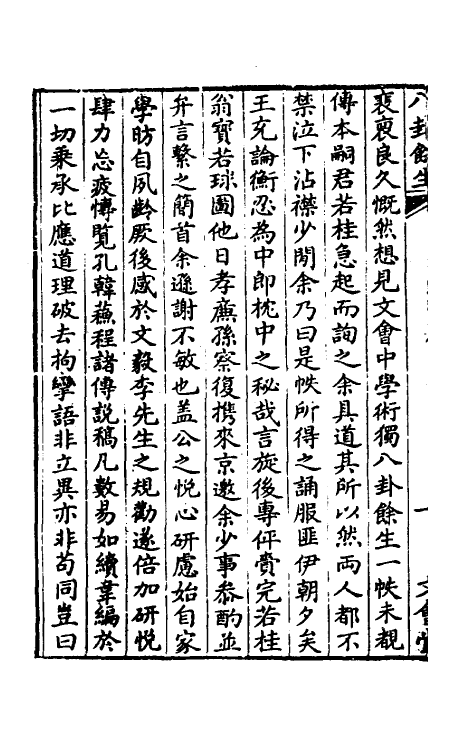 八卦餘生
裒裒良久慨然想見文會中學術獨八卦餘生一帙未覩
傳本嗣君若桂急起而詢之余具道其所以然両人都不
禁泣下沾襟少間余乃曰是帙所得之誦服匪伊朝夕矣
王充論衡忍為中郎枕中之秘哉言旋後專伻賫完若桂
翁寳若球圖他日孝廉孫察復携來京邀余少事叅酌並
弁言繫之簡首余遜謝不敏也盖公之悅心研慮始自家
學昉自夙齡厥後感於文毅李先生之規勸遂倍加研悅
肆力忘疲慱覧孔韓蘓程諸傳說稿凡數易如續韋編於
一切乘承比應道理破去拘攣語非立異亦非苟同豈曰